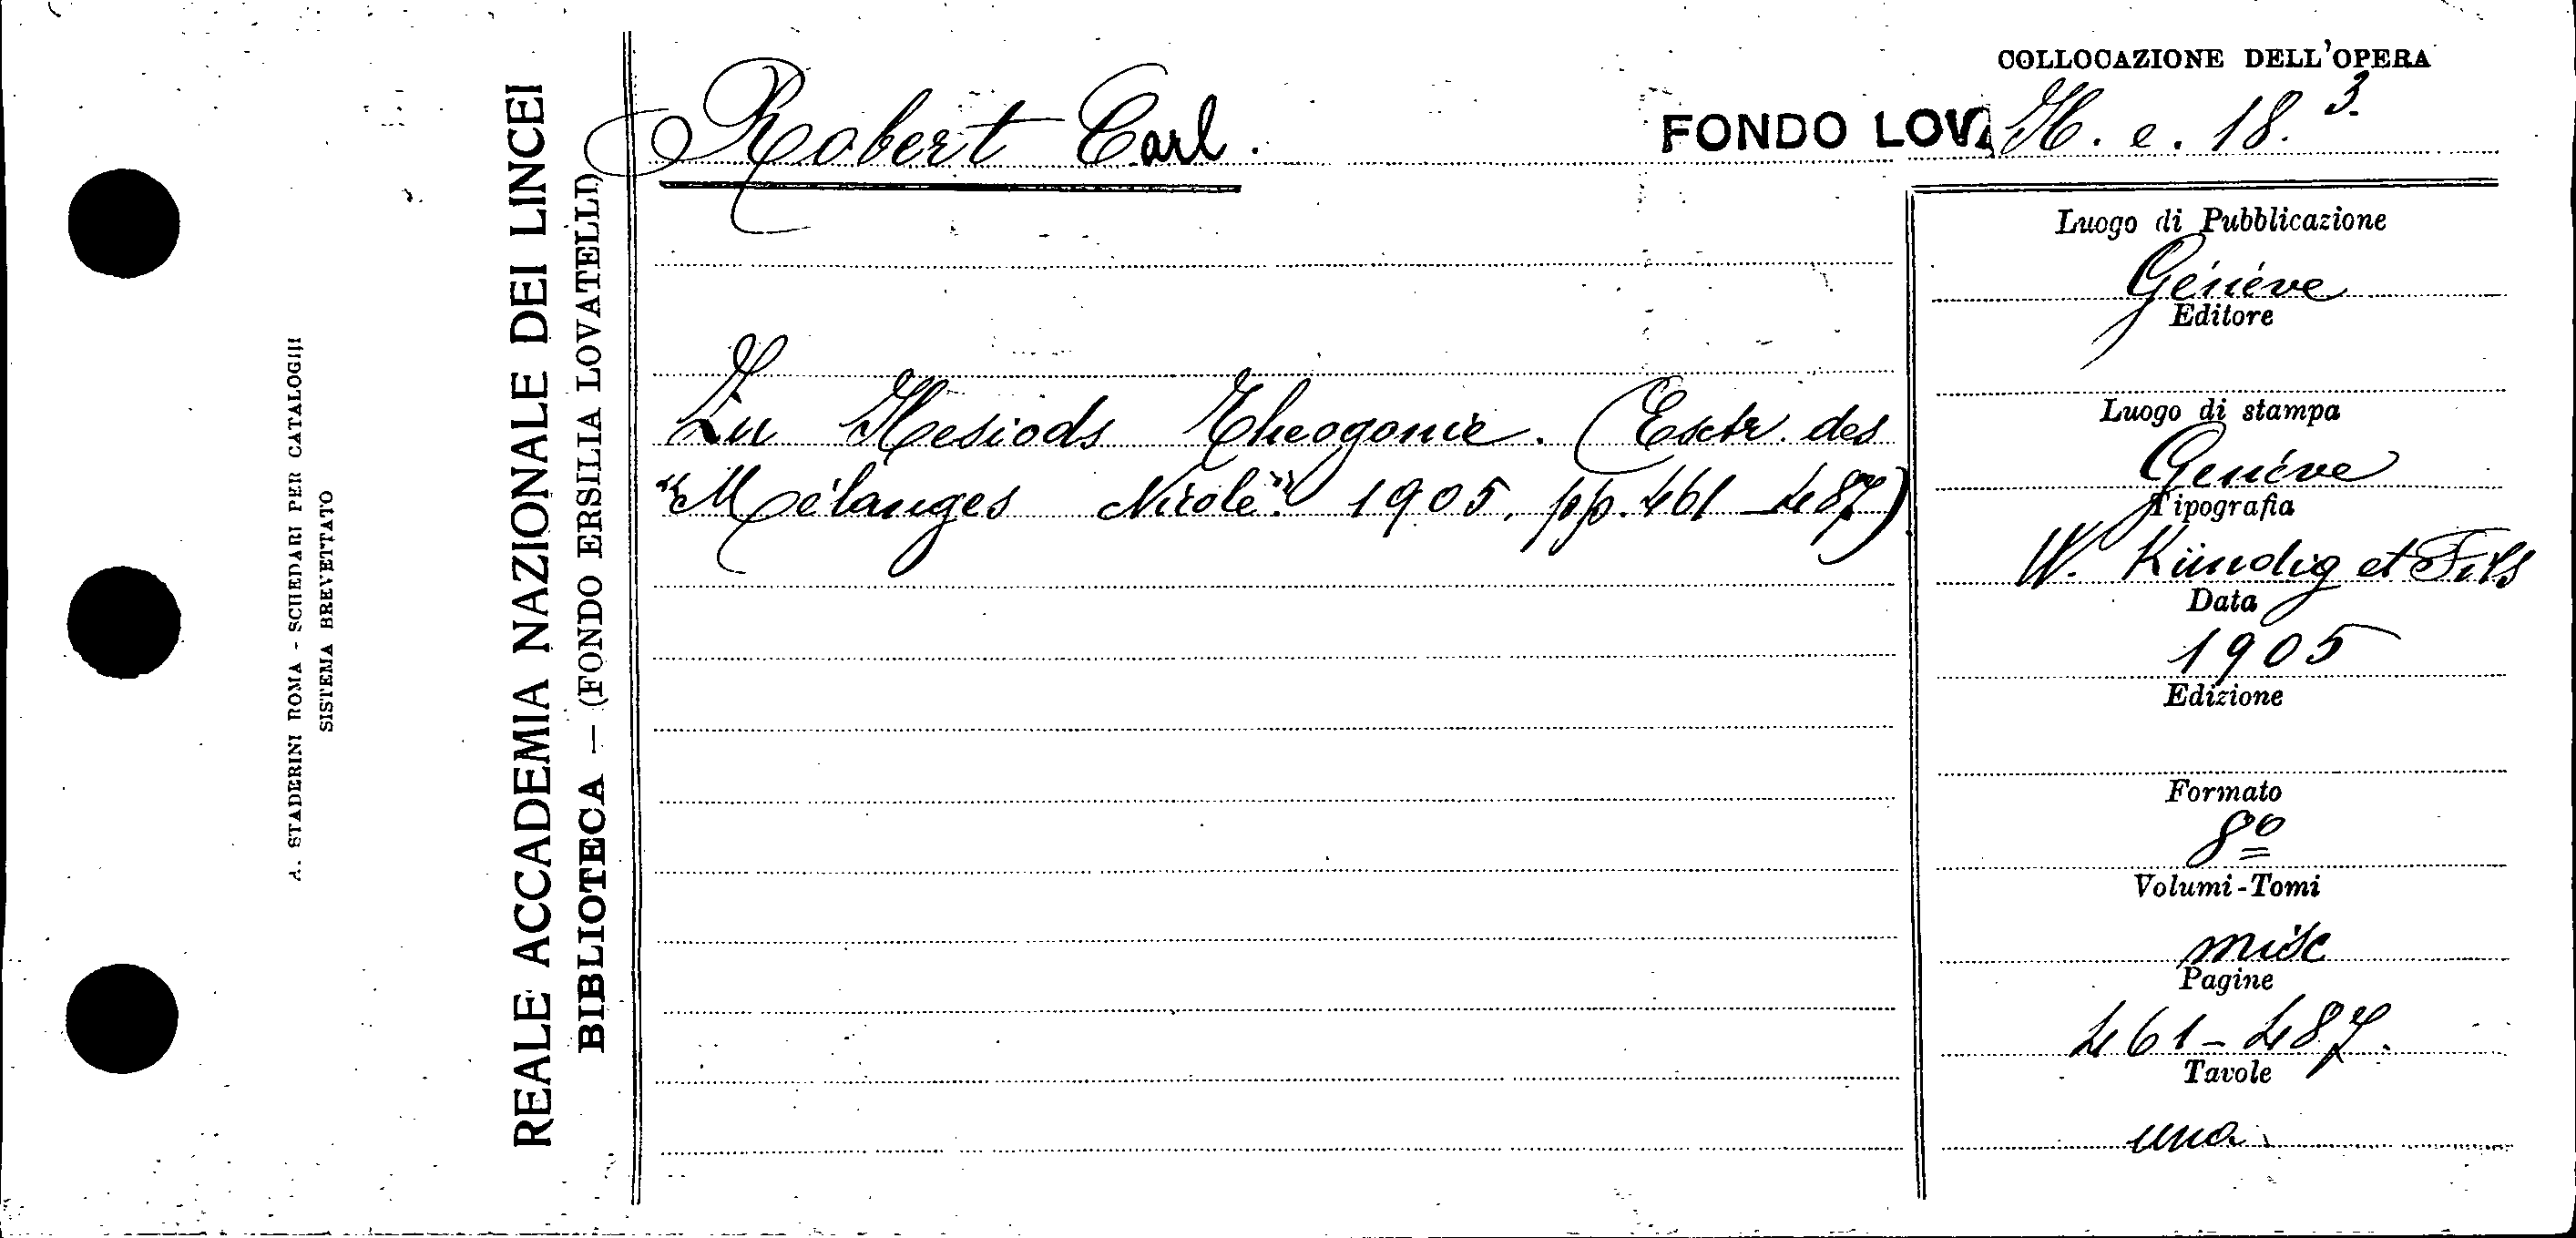 A. STADERINI ROMA - SCHEDARI PER CATALOGHI
SISTEMA BREVETTATO
REALE ACCADEMIA NAZIONALE DEI LINCEI
BIBLIOTECA — (FONDO ERSILIA LOVATELLI)
Robert Carl.
Zu Hesiods Theogonie. (Esctr. des
"Mélanges Nicole". 1905. pp. 461-487)
COLLOCAZIONE DELL'OPERA
FONDO LOVA H. e. 18. 3.
Luogo di Pubblicazione
Généve
Editore
Luogo di stampa
Genéve
Tipografia
W. Kündig et Fils
Data
1905
Edizione
Formato
8º
Volumi-Tomi
misc
Pagine
461-487.
Tavole
una